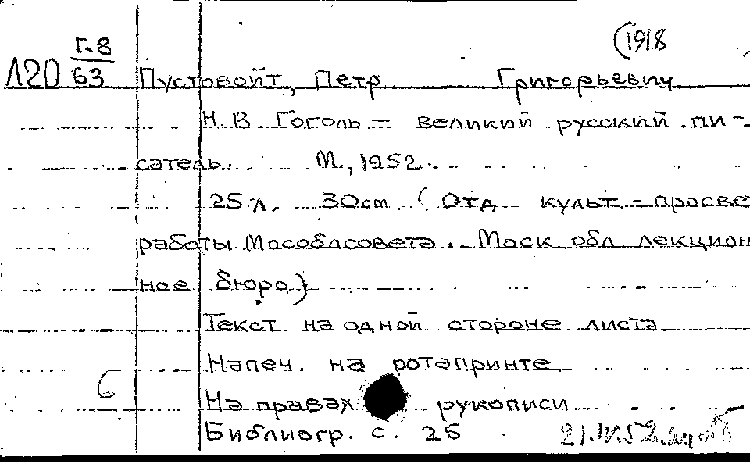 (1918
Г-8
Л20 63 Пустовойт, Петр Григорьевич
Н. В. Гоголь – великий русский пи-
сатель. М., 1952.
25 л. 30cm (Отд культ-просве
работы Мособлсовета. Моск обл лекцион
ное бюро)
Текст на одной стороне листа
Напеч. на ротапринте
На правах рукописи
6
Библиогр. с. 25